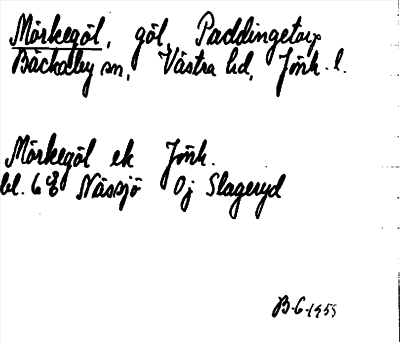 Mörkegöl, göl, Paddingetorp
Bäckaby sn, Västra hd, Jönk. l.
Mörkegöl ek Jönk.
bl. 6 Nässjö Oj Slageryd
B-G-1959